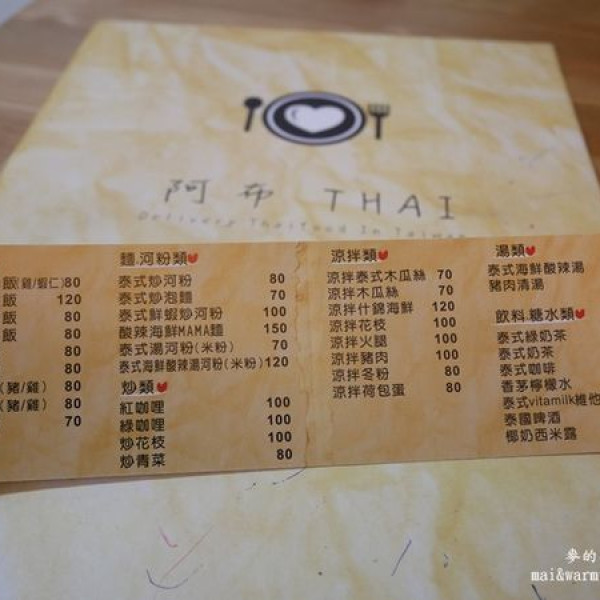 阿布 THAI
Delivery Thaifood In Taiwan
飯(雞/蝦仁)80
飯 120
飯 80
飯 80
80
80
(豬/雞) 80
(豬/雞) 80
70
麵.河粉類
泰式炒河粉 80
泰式炒泡麵 70
泰式鮮蝦炒河粉 100
酸辣海鮮MAMA麵 150
泰式湯河粉(米粉) 70
泰式海鮮酸辣湯河粉(米粉) 120
炒類
紅咖哩 100
綠咖哩 100
炒花枝 100
炒青菜 80
涼拌類
涼拌泰式木瓜絲 70
涼拌木瓜絲 70
涼拌什錦海鮮 120
涼拌花枝 100
涼拌火腿 100
涼拌豬肉 100
涼拌冬粉 80
涼拌荷包蛋 80
湯類
泰式海鮮酸辣湯
豬肉清湯
飲料.糖水類
泰式綠奶茶
泰式奶茶
泰式咖啡
香茅檸檬水
泰式vitamilk維他
泰國啤酒
椰奶西米露
麥的
mai&warm